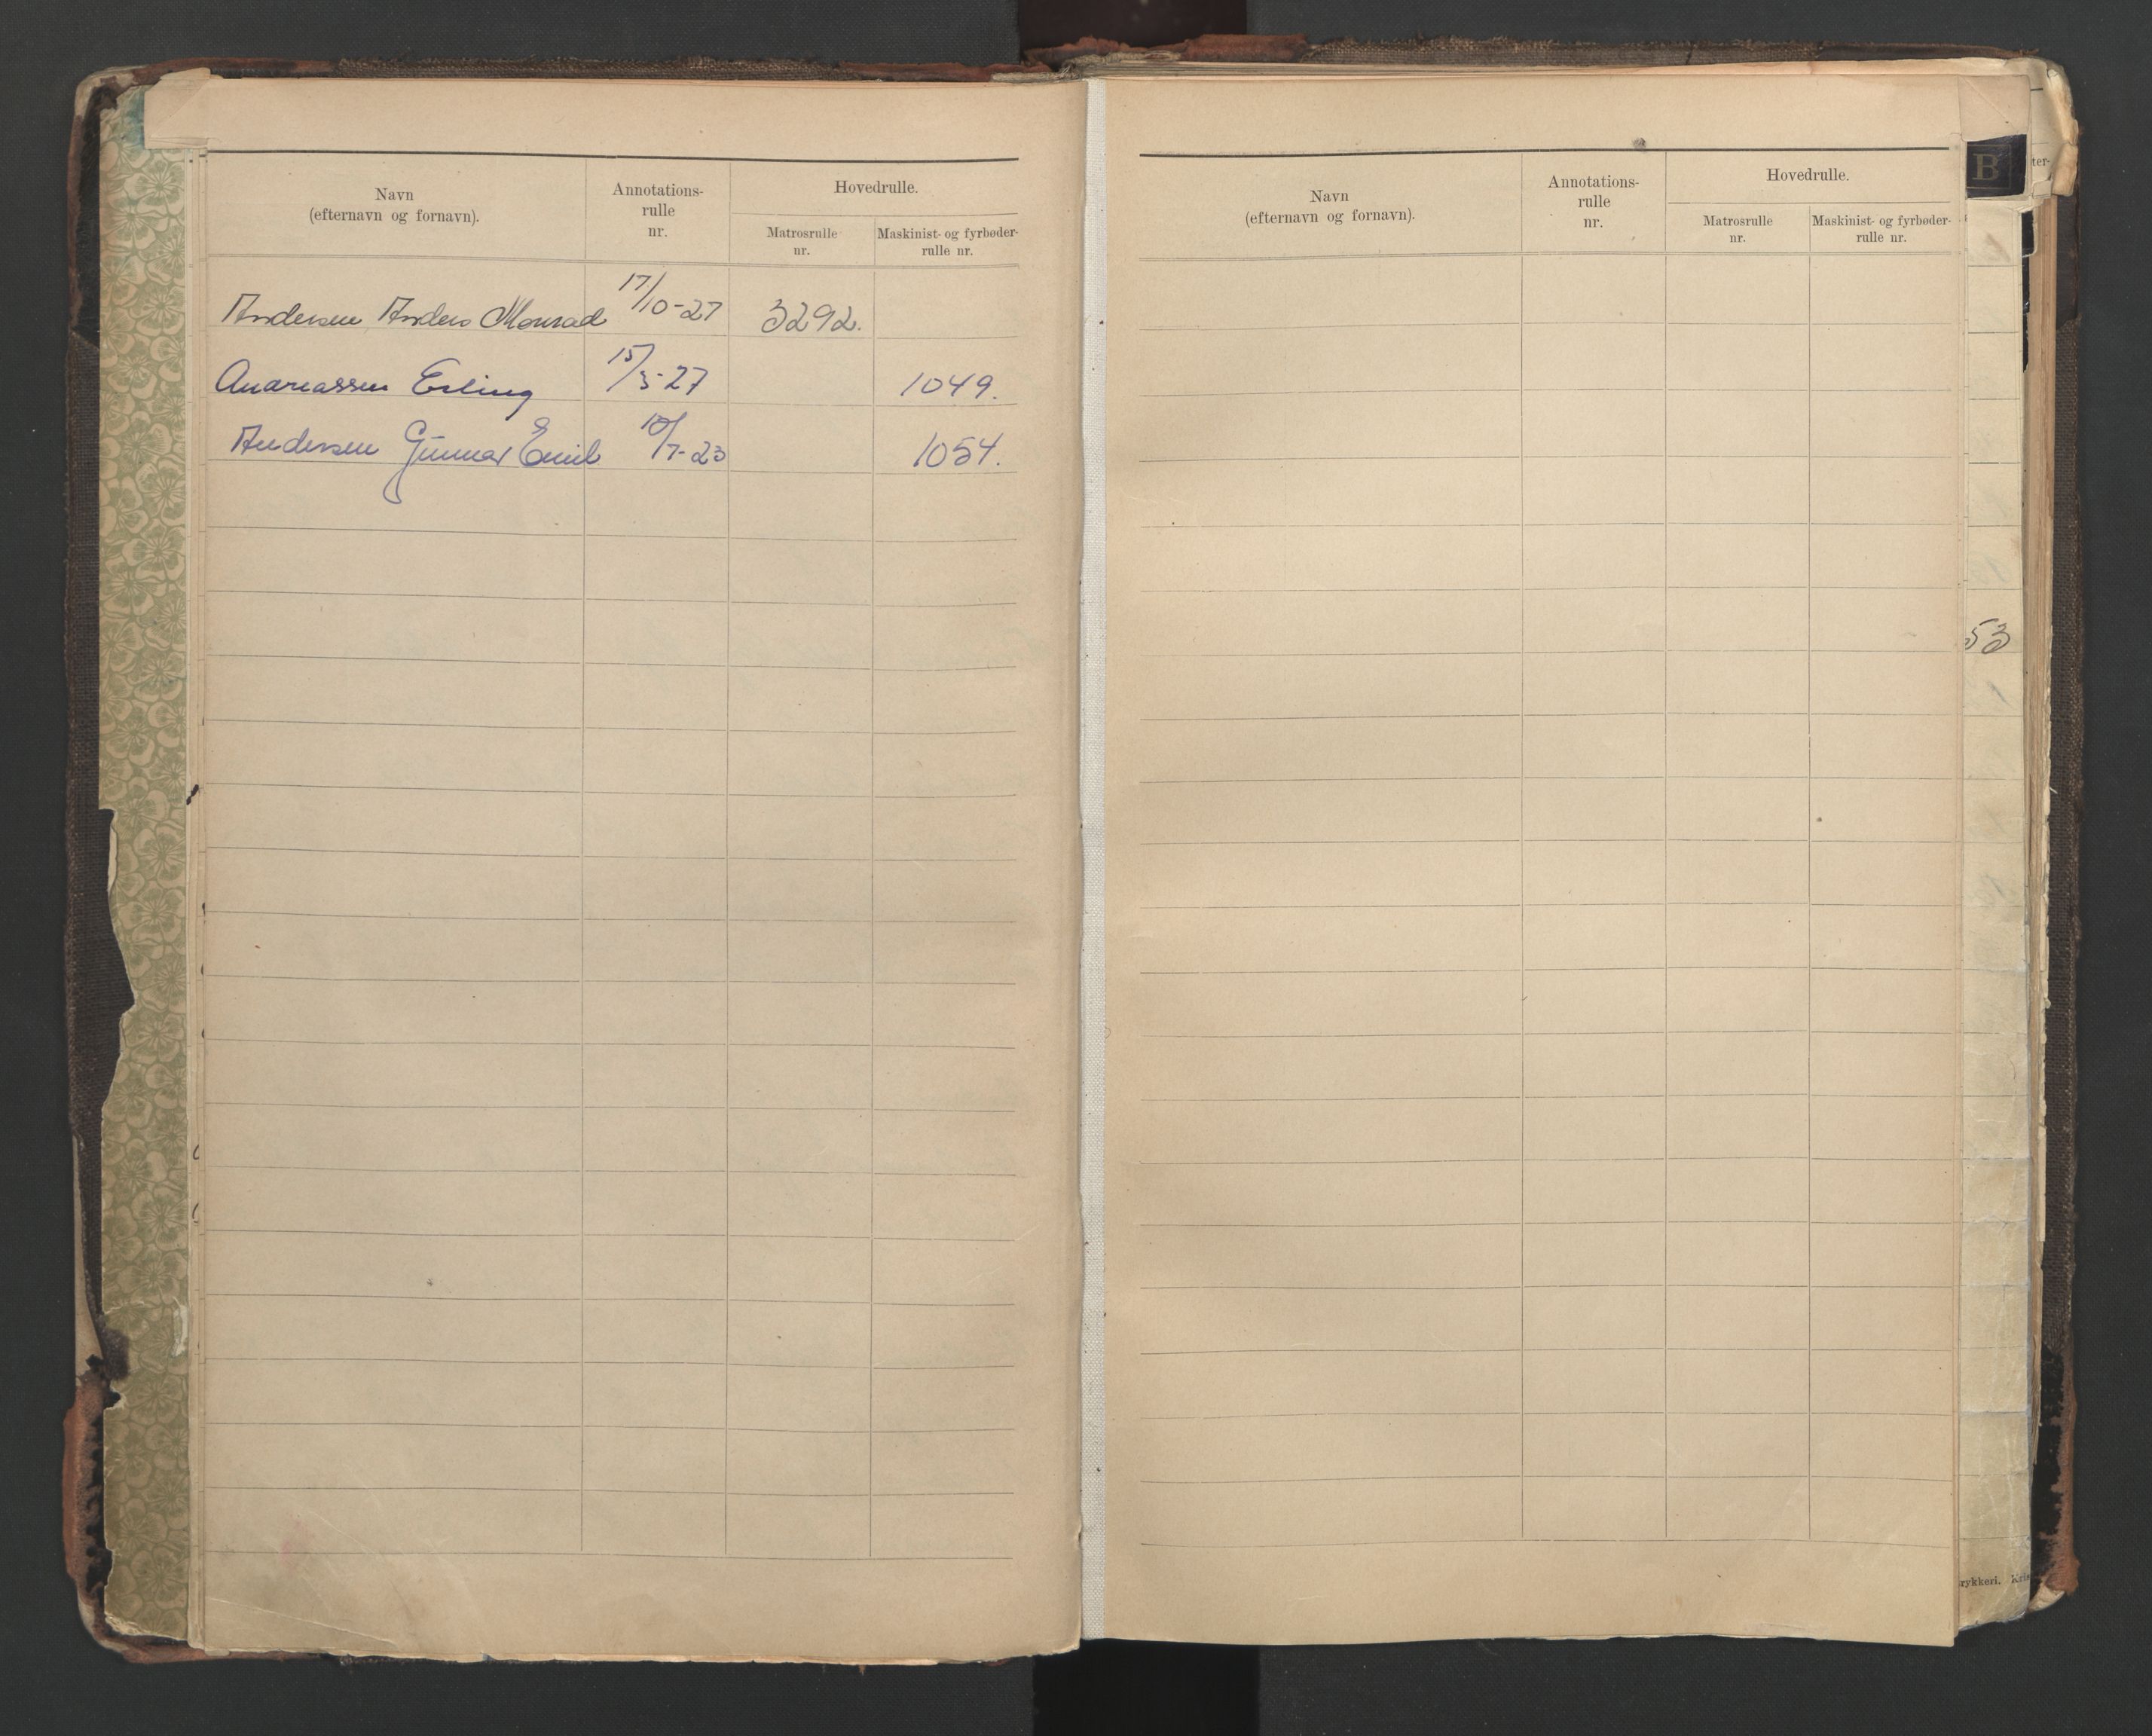 Navn
(efternavn og fornavn).
Annotations-
rulle
nr.
Hovedrulle.
Matrosrulle
nr.
Maskinist- og fyrbøder-
rulle nr.
Andersen Anders Monrad 17/10-27 3292.
Andreassen Erling 15/3-27 1049.
Andersen Gunnar Emil 10/7-23 1054.
Navn
(efternavn og fornavn).
Annotations-
rulle
nr.
Hovedrulle.
Matrosrulle
nr.
Maskinist- og fyrbøder-
rulle nr.
B
ter-
53
rykkeri. Kris